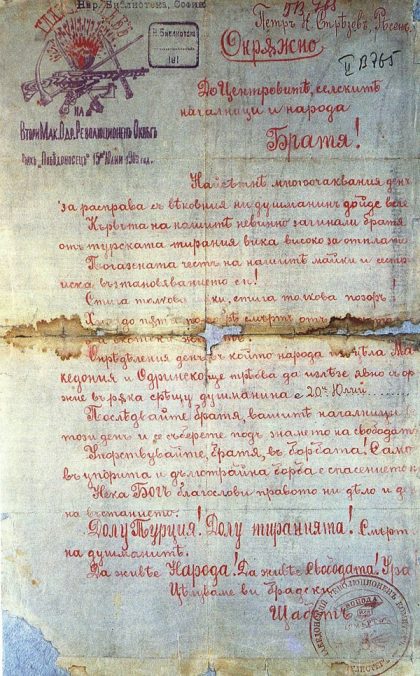 Нар. Библиотека, София
Н. Библиотека
181
ПВ 765
Петръ Н. Стрѣзевъ, Ресенъ
II В 765
Окрѫжно
НА
Втори Мак. Одр. Революционенъ Окрѫгъ
15й Юлий 1903 год.
До Центроветѣ, селскитѣ
началници и народа
Братя!
многоочаквания день
за расправа съ вѣковния ни душманинъ дойде вече
Кръвьта на нашитѣ невинно загинали братя
отъ турската тирания вика високо за отплата
Погазената честь на нашитѣ майки и сестри
иска възтановяванието си!
Стига толкова мѫки, стига толкова позоръ!
смърть отъ
Опрѣделения день, въ който народа изъ цѣла Ма
кедония и Одринско ще трѣбва да излѣзе явно съ орѫ
жие въ рѫка срѣщу душманина е 20й Юлий
Послѣдвайте братя, вашитѣ началници
този день и се съберете подъ знамето на свободата
Упорствувайте, братя, въ борбата! Само
въ упорита и дълготрайна борба е спасението н
Нека Богъ благослови правото ни дѣло и де
на въстанието.
Долу Турция! Долу тиранията! Смърть
на душманитѣ.
Да живѣе Народа! Да живѣе Свободата! Ура
Цѣлуваме ви братски
Щабътъ